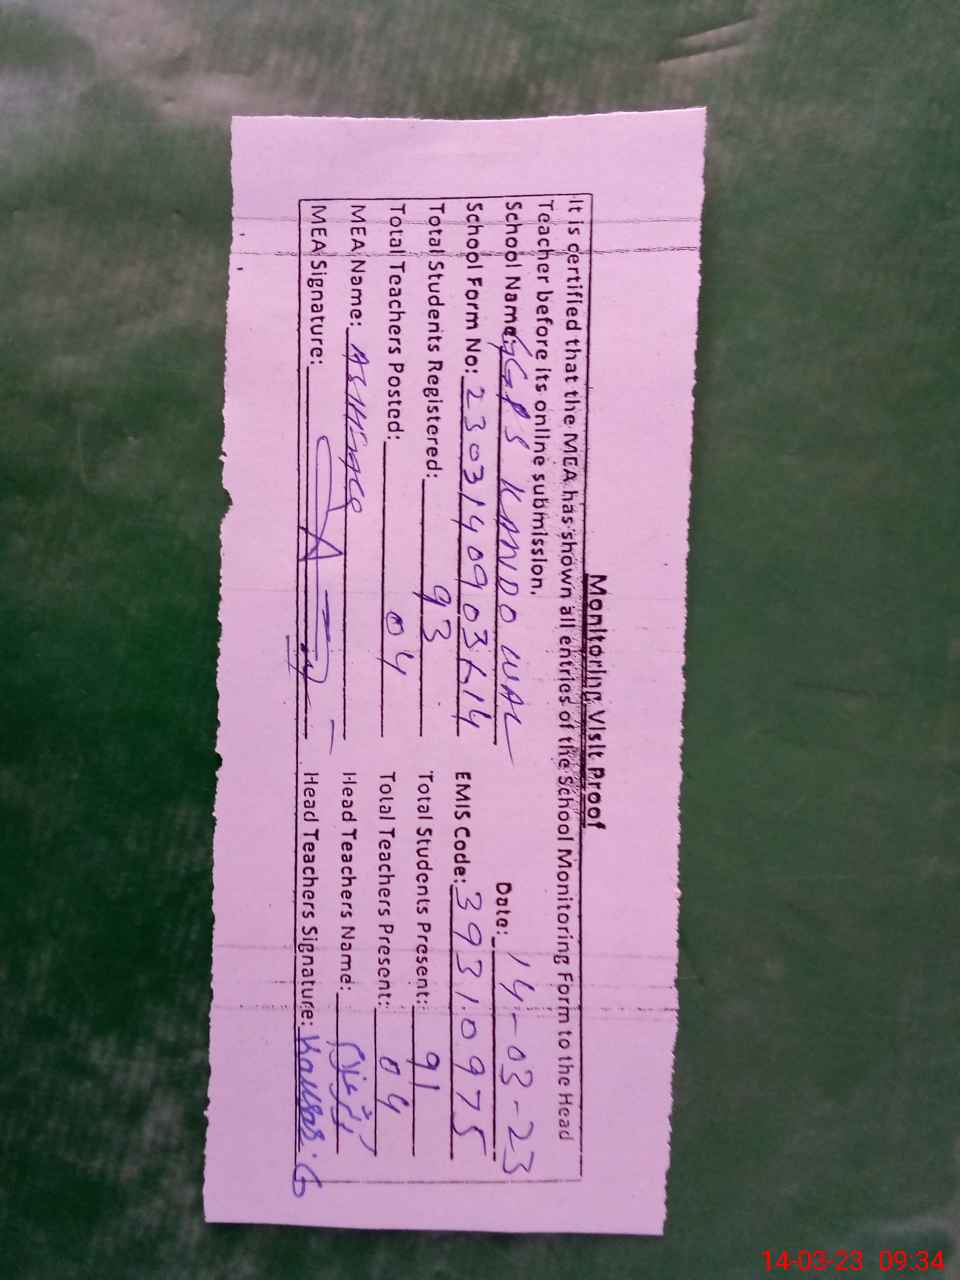 Monitoring Visit Proof
It is certified that the MEA has shown all entries of the School Monitoring Form to the Head
Teacher before its online submission.
School Name: GGPS KANDO WAL Date: 14-03-23
School Form No: EMIS Code: 39310975
Total Students Registered: 93 Total Students Present: 91
Total Teachers Posted: 04 Total Teachers Present: 04
MEA Name: Head Teachers Name:
MEA Signature: Head Teachers Signature: Kausar.G
14-03-23 09:34